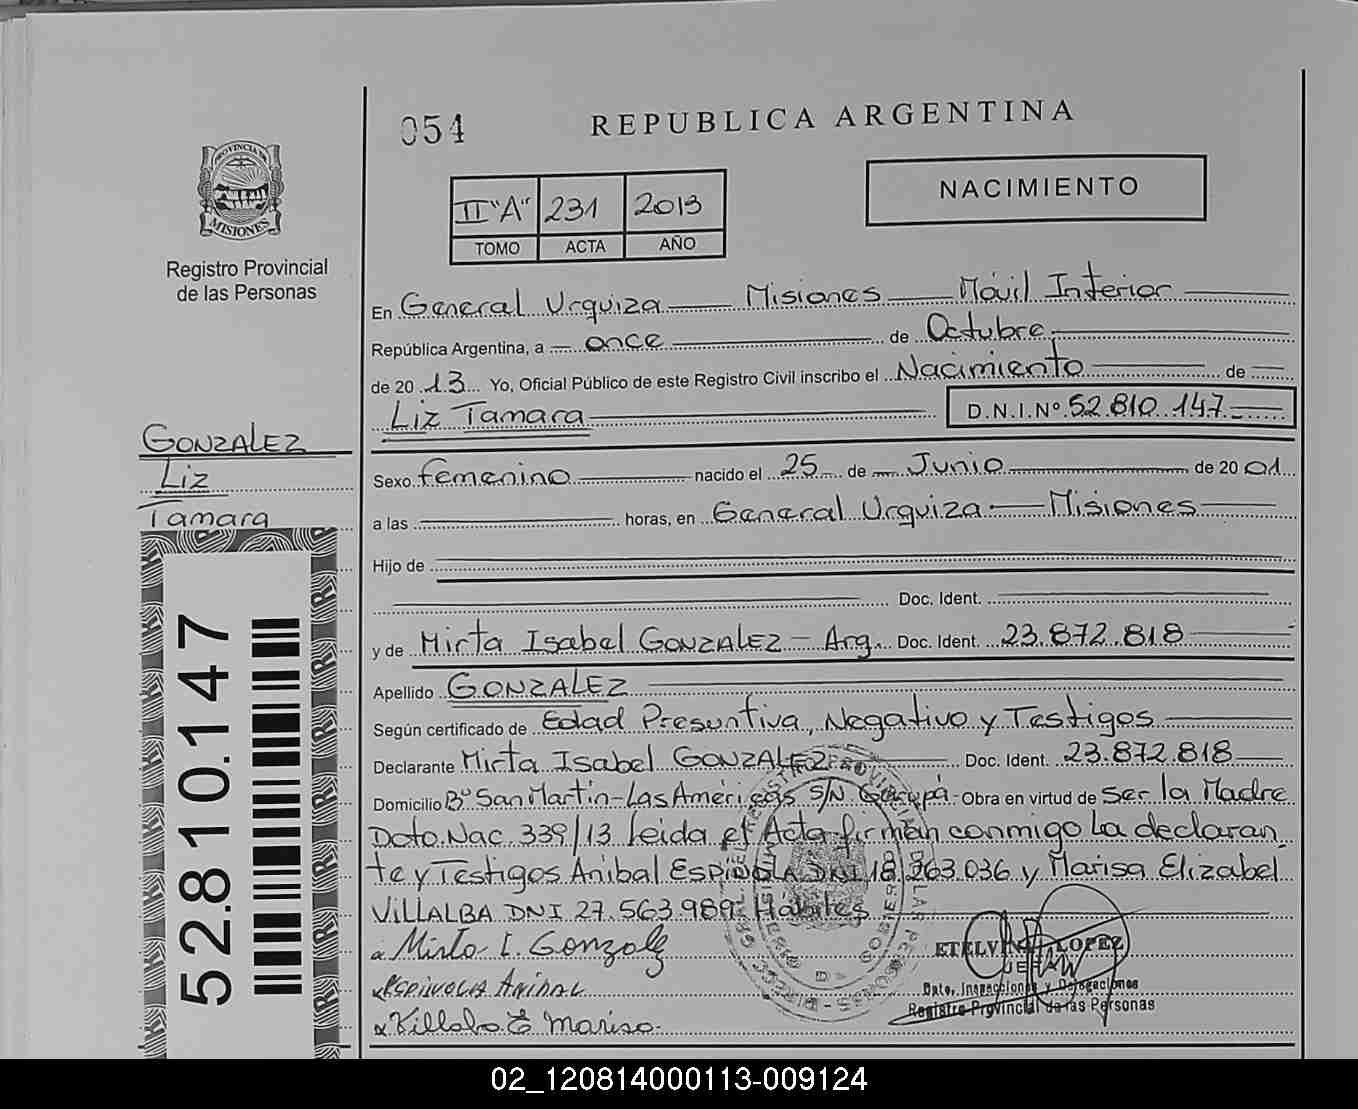 054
REPUBLICA ARGENTINA
PROVINCIA DE
MISIONES
Registro Provincial
de las Personas
II "A" 231 2013
TOMO ACTA AÑO
NACIMIENTO
En General Urquiza Misiones Móvil Interior
República Argentina, a once de Octubre
de 2013 Yo, Oficial Público de este Registro Civil inscribo el Nacimiento de
Liz Tamara D.N.I.Nº 52.810.147
GONZALEZ
Liz
Tamara
52.810.147
Sexo femenino nacido el 25 de Junio de 2001
a las horas, en General Urquiza Misiones
Hijo de
Doc. Ident.
y de Mirta Isabel GONZALEZ - Arg. Doc. Ident. 23.872.818
Apellido GONZALEZ
Según certificado de Edad Presuntiva, Negativo y Testigos
Declarante Mirta Isabel GONZALEZ Doc. Ident. 23.872.818
Domicilio Bº San Martín-Las Américas S/N Garupá Obra en virtud de ser la Madre
Dcto. Nac. 339/13 leida el Acta firman conmigo la declaran
te y Testigos Anibal ESPINOLA DNI 18.263.036 y Marisa Elizabel
VILLALBA DNI 27.563.989 Habiles
Mirta I. Gonzalez
Espinola Anibal
Villalba E Marisa
ETELVINA LOPEZ
JEFA
Dpto. Inspecciones y Delegaciones
Registro Provincial de las Personas
02_120814000113-009124